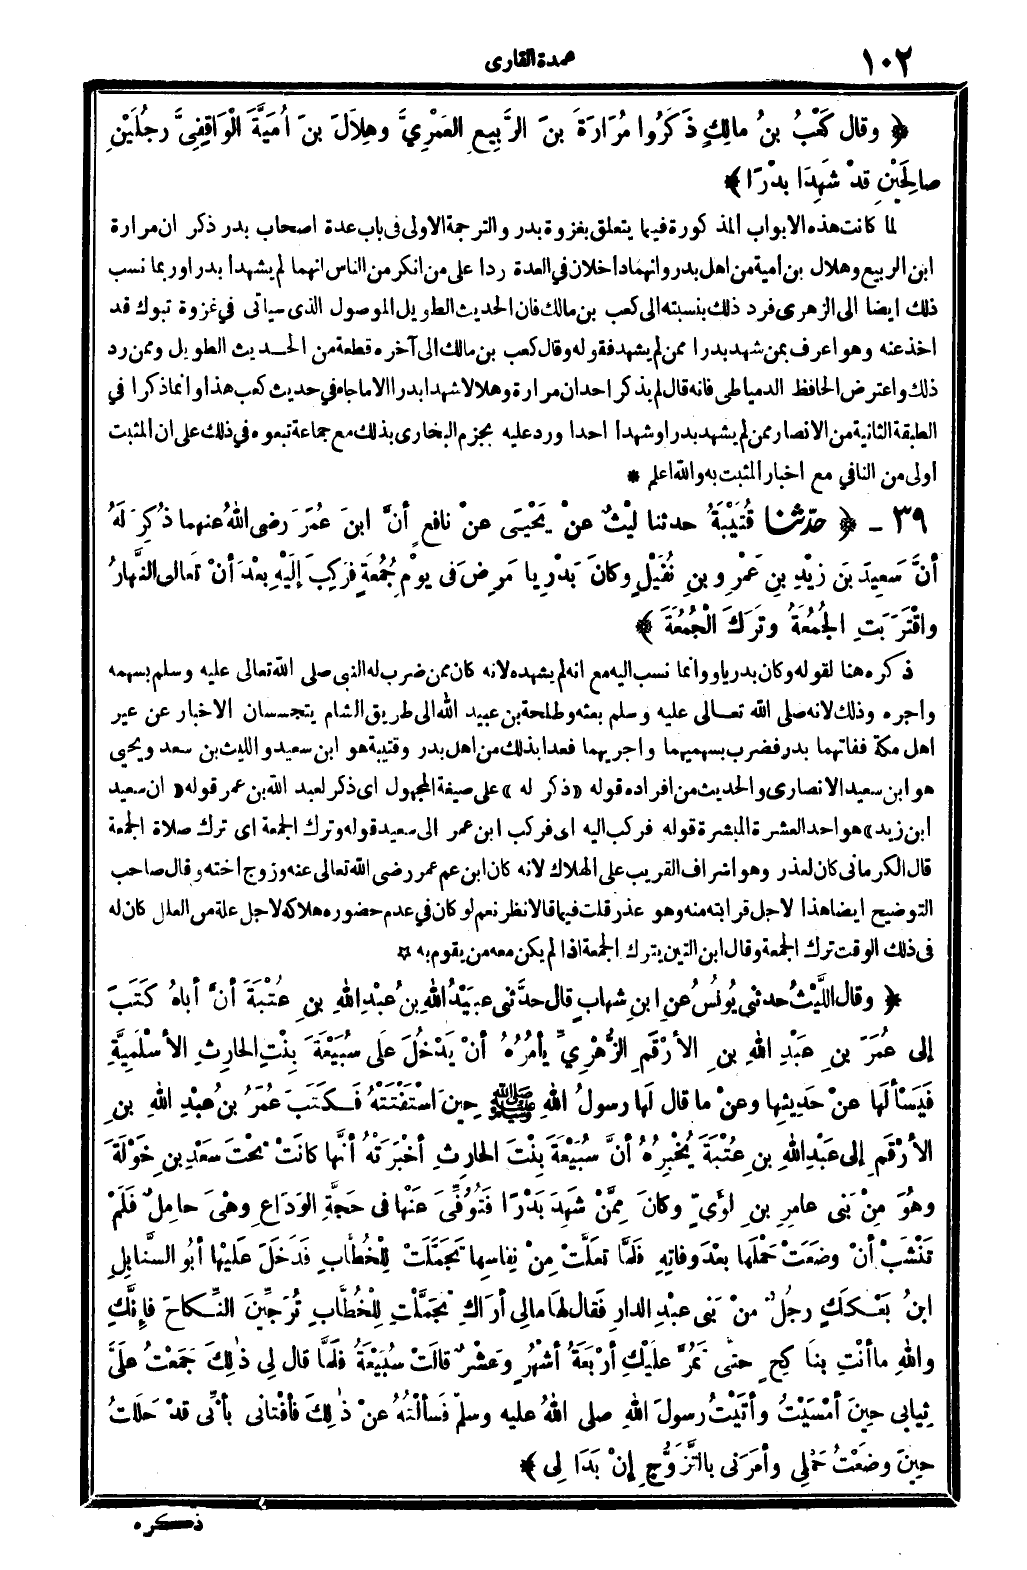 ١٠٢
عمدة القارى
﴿ وقال كَعْبُ بنُ مالِكٍ ذَكَرُوا مُرَارَةَ بنَ الرَّبِيعِ العَمْرِيَّ وهِلاَلَ بنَ أُمَيَّةَ الْوَاقِفِيَّ رجُلَيْنِ
صالِحَيْنِ قدْ شَهِدَا بدْرًا ﴾
لما كانت هذه الابواب المذكورة فيما يتعلق بغزوة بدر والترجمة الاولى فى باب عدة اصحاب بدر ذكر ان مرارة
ابن الربيع وهلال بن أمية من اهل بدر وانهما داخلان في العدة ردا على من انكر من الناس انهما لم يشهدا بدرا وربما نسب
ذلك ايضا الى الزهرى فرد ذلك بنسبته الى كعب بن مالك فان الحديث الطويل الموصول الذى سيأتى في غزوة تبوك قد
اخذ عنه وهو اعرف بمن شهد بدرا ممن لم يشهد فقوله وقال كعب بن مالك الى آخره قطعة من الحديث الطويل وممن رد
ذلك واعترض الحافظ الدمياطى فانه قال لم يذكر احد ان مرارة وهلالا شهدا بدرا الا ماجاء في حديث كعب هذا وانما ذكرا في
الطبقة الثانية من الانصار ممن لم يشهد بدرا وشهدا احدا ورد عليه بجزم البخارى بذلك مع جماعة تبعوه في ذلك على ان المثبت
أولى من النافي مع اخبار المثبت به والله اعلم *
٣٩ - ﴿ حدّثنا قُتَيْبَةُ حدثنا ليْثٌ عنْ يَحْيَى عنْ نافِعٍ أنَّ ابنَ عُمَرَ رضى اللهُ عنهما ذُكِرَ لَهُ
أنَّ سَعِيدَ بنَ زيْدِ بنِ عَمْرِو بنِ نُفَيْلٍ وكانَ بَدْرِيا مَرِضَ فى يوْمِ جُمُعَةٍ فرَكِبَ إلَيْهِ بعْدَ أنْ تَعالى النَّهارُ
واقْتَرَبَتِ الجُمُعَةُ وتَرَكَ الْجُمُعَةَ ﴾
ذكره هنا لقوله وكان بدريا ووانما نسب اليه مع انه لم يشهده لانه كان ممن ضرب له النبى صلى الله تعالى عليه وسلم بسهمه
واجره وذلك لانه صلى الله تعـالى عليه وسلم بعثه وطلحة بن عبيد الله الى طريق الشام يتجسسان الاخبار عن عير
اهل مكة ففاتهما بدر فضرب بسهميهما واجريهما فعدا بذلك من اهل بدر وقتيبة هو ابن سعيد والليث بن سعد ويحيى
هو ابن سعيد الانصارى والحديث من افراده قوله «ذكر له» على صيغة المجهول اى ذكر لعبد الله بن عمر قوله «ان سعيد
ابن زيد» هو احد العشرة المبشرة قوله فركب اليه اى فركب ابن عمر الى سعيد قوله وترك الجمعة اى ترك صلاة الجمعة
قال الكرمانى كان لعذر وهو اشراف القريب على الهلاك لانه كان ابن عم عمر رضى الله تعالى عنه وزوج اخته وقال صاحب
التوضيح ايضا هذا لاجل قرابته منه وهو عذر قلت فيما قالا نظر نعم لو كان في عدم حضوره هلاكه لاجل علة من العلل كان له
فى ذلك الوقت ترك الجمعة وقال ابن التين يترك الجمعة اذا لم يكن معه من يقوم به *
﴿ وقال اللَّيْثُ حدثنى يُونُسُ عنِ ابنِ شهابٍ قال حدَّثنى عبَيْدُ اللهِ بنُ عبْدِ اللهِ بنِ عُتْبَةَ أنَّ أباهُ كَتَبَ
إلى عُمَرَ بنِ عبْدِ اللهِ بنِ الأرْقَمِ الزُّهْرِيِّ يأمُرُهُ أنْ يَدْخُلَ علَى سُبَيْعَةَ بِنْتِ الحارِثِ الأسْلَمِيَّةِ
فَيَسْأَلَها عنْ حَدِيثِها وعنْ ما قال لَها رسولُ اللهِ ﷺ حِينَ اسْتَفْتَتْهُ فَـكَتَبَ عُمَرُ بنُ عبْدِ اللهِ بنِ
الأرْقَمِ إلى عبْدِ اللهِ بنِ عُتْبَةَ يُخْبِرُهُ أنَّ سُبَيْعَةَ بِنْتَ الحارِثِ أخْبَرَتْهُ أنَّها كانَتْ تحْتَ سَعْدِ بنِ خَوْلَةَ
وهُوَ مِنْ بَنى عامِرِ بنِ لُؤَىٍّ وكانَ مِمَّنْ شَهِدَ بَدْرًا فَتُوُفِّىَ عَنْها فى حَجَّةِ الوَدَاعِ وهْىَ حامِلٌ فلَمْ
تَنْشَبْ أنْ وضَعَتْ حَمْلَها بعْدَ وفاتِهِ فَلَمَّا تعَلَّتْ مِنْ نِفاسِها تَجَمَّلَتْ لِلْخُطَّابِ فدَخَلَ عَلَيْها أبُو السَّنابِلِ
ابنُ بَعْـكَكٍ رجُلٌ منْ بَنى عبْدِ الدارِ فَقال لهَا مالِى أرَاكِ تجَمَّلْتِ لِلْخُطَّابِ تُرَجِّينَ النِّـكاحَ فإنَّكِ
واللهِ ما أنْتِ بنَاكِحٍ حتَّى تَمُرَّ علَيْكِ أرْبَعَةُ أشْهُرٍ وَعَشْرٌ قالَتْ سُبَيْعَةُ فَلَمَّا قال لِى ذٰلِكَ جَمَعْتُ علَىَّ
ثِيابى حِينَ أمْسَيْتُ وأتَيْتُ رسولَ اللهِ صلى اللهُ عليه وسلّم فَسألْتُهُ عنْ ذٰلِكَ فأفْتانى بأنِّى قدْ حَلَلْتُ
حِينَ وضَعْتُ حَمْلِى وأمَرَنى بالتَّزَوُّجِ إنْ بَدَا لِى ﴾
ذكره